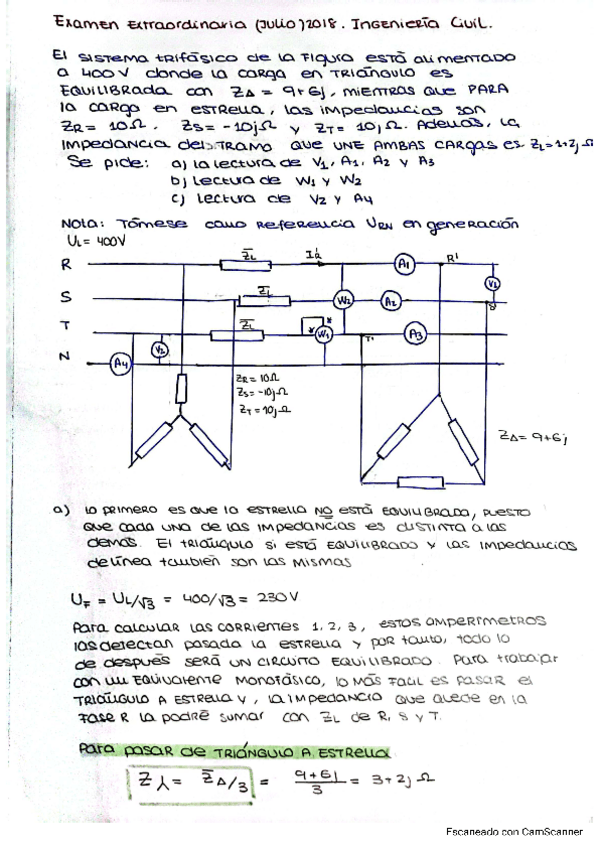 Examen Extraordinaria (Julio) 2018. Ingeniería Civil.
El sistema trifásico de la figura está alimentado
a 400V donde la carga en TRIÁNGULO es
EQUILIBRADA con ZΔ = 9+6j, mientras que PARA
la carga en estrella, las impedancias son
ZR = 10Ω, ZS = -10jΩ y ZT = 10jΩ. Además, la
impedancia del TRAMO que UNE AMBAS CARGAS es ZL=1+2jΩ
Se pide: a) la lectura de V1, A1, A2 y A3
b) lectura de W1 y W2
c) lectura de V2 y A4
Nota: Tómese como referencia URN en generación
UL = 400V
R
ZL
IR
A1
R'
S
ZL
W2
A2
V1
S'
T
ZL
* *
W1
T'
A3
N
A4
V2
ZR = 10Ω
ZS = -10jΩ
ZT = 10jΩ
ZΔ = 9+6j
a) lo primero es que la estrella NO está EQUILIBRADA, puesto
que cada una de las impedancias es distinta a las
demás. El triángulo si está EQUILIBRADO y las impedancias
de línea también son las mismas
UF = UL/√3 = 400/√3 = 230V
Para calcular las corrientes 1, 2, 3, estos amperímetros
las detectan pasada la estrella y por tanto, todo lo
de después será un circuito equilibrado. Para trabajar
con un Equivalente Monofásico, lo más fácil es pasar el
TRIÁNGULO A ESTRELLA y, la impedancia que quede en la
fase R la podré sumar con ZL de R, S y T.
Para pasar de TRIÁNGULO A ESTRELLA
Z⅄ = ZΔ/3 = 9+6j/3 = 3+2jΩ
Escaneado con CamScanner